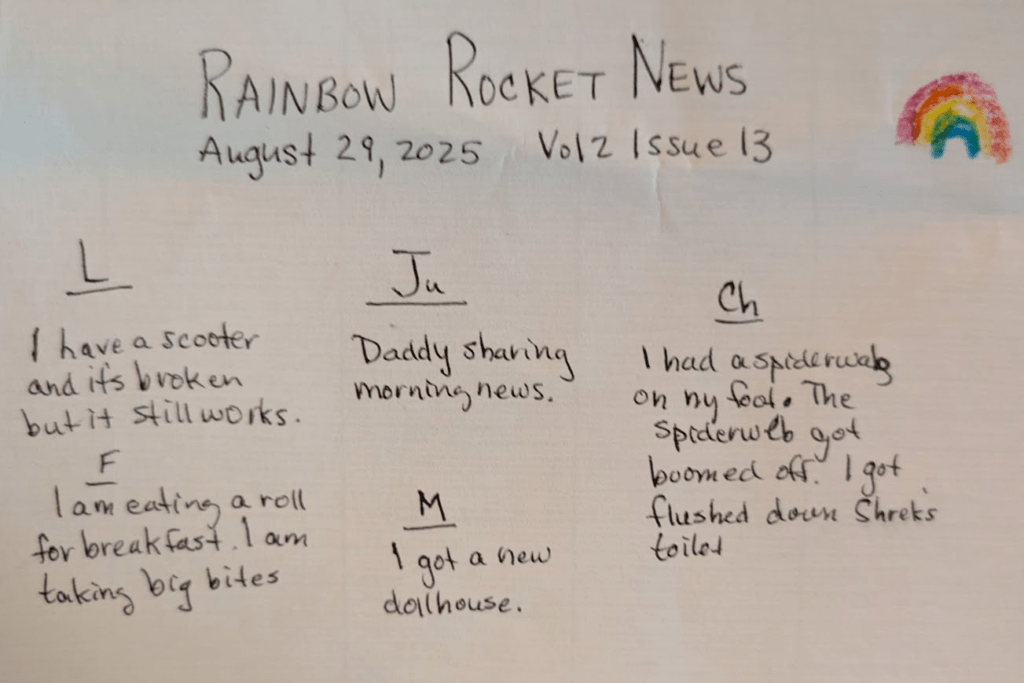 RAINBOW ROCKET NEWS
August 29, 2025 Vol 2 Issue 13
L
I have a scooter
and it's broken
but it still works.
F
I am eating a roll
for breakfast. I am
taking big bites
Ju
Daddy sharing
morning news.
M
I got a new
dollhouse.
Ch
I had a spiderweb
on my foot. The
spiderweb got
boomed off. I got
flushed down Shrek's
toilet